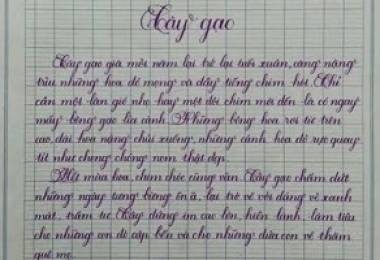 Cây gạo
Cây gạo già mỗi năm lại trở lại tuổi xuân, càng nặng
trĩu những hoa đỏ mọng và đầy tiếng chim hót. Chỉ
cần một làn gió nhẹ hay một đôi chim mới đến là có ngay
mấy bông gạo lìa cành. Những bông hoa rơi từ trên
cao, đài hoa nặng chúi xuống, những cánh hoa đỏ rực quay
tít như chong chóng nom thật đẹp.
Hết mùa hoa, chim chóc cũng vãn. Cây gạo chấm dứt
những ngày tưng bừng ồn ã, lại trở về với dáng vẻ xanh
mát, trầm tư. Cây đứng im cao lớn, hiền lành, làm tiêu
cho những con đò cập bến và cho những đứa con về thăm
quê mẹ.